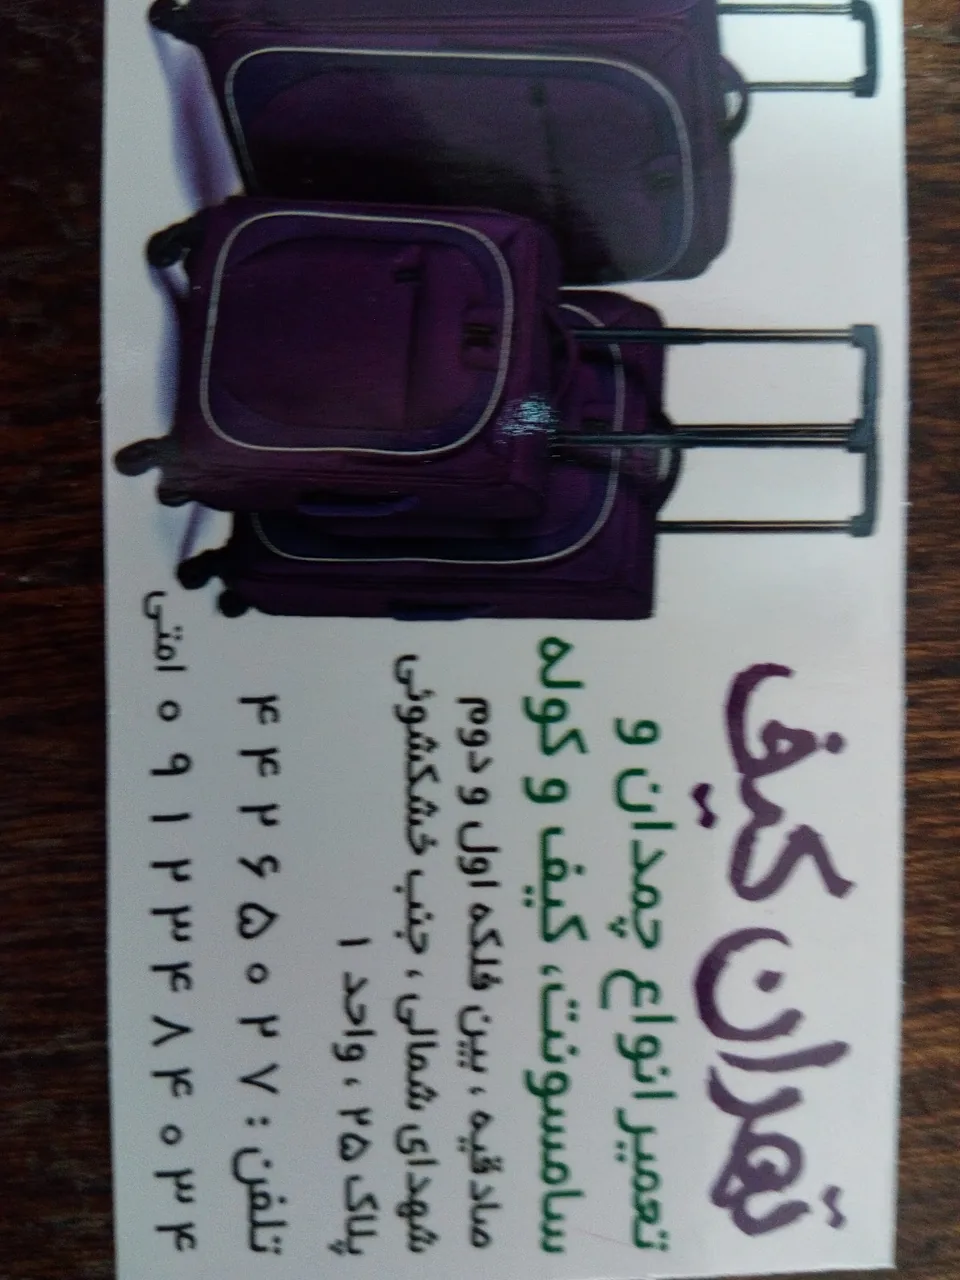 تهران کیف
تعمیر انواع چمدان و
سامسونت، کیف و کوله
صادقیه ، بین فلکه اول و دوم
شهدای شمالی ، جنب خشکشوئی
پلاک ۲۵ ، واحد ۱
تلفن : ۴۴۲۶۵۰۲۷
۰۹۱۲۳۴۸۴۰۳۴ امتی